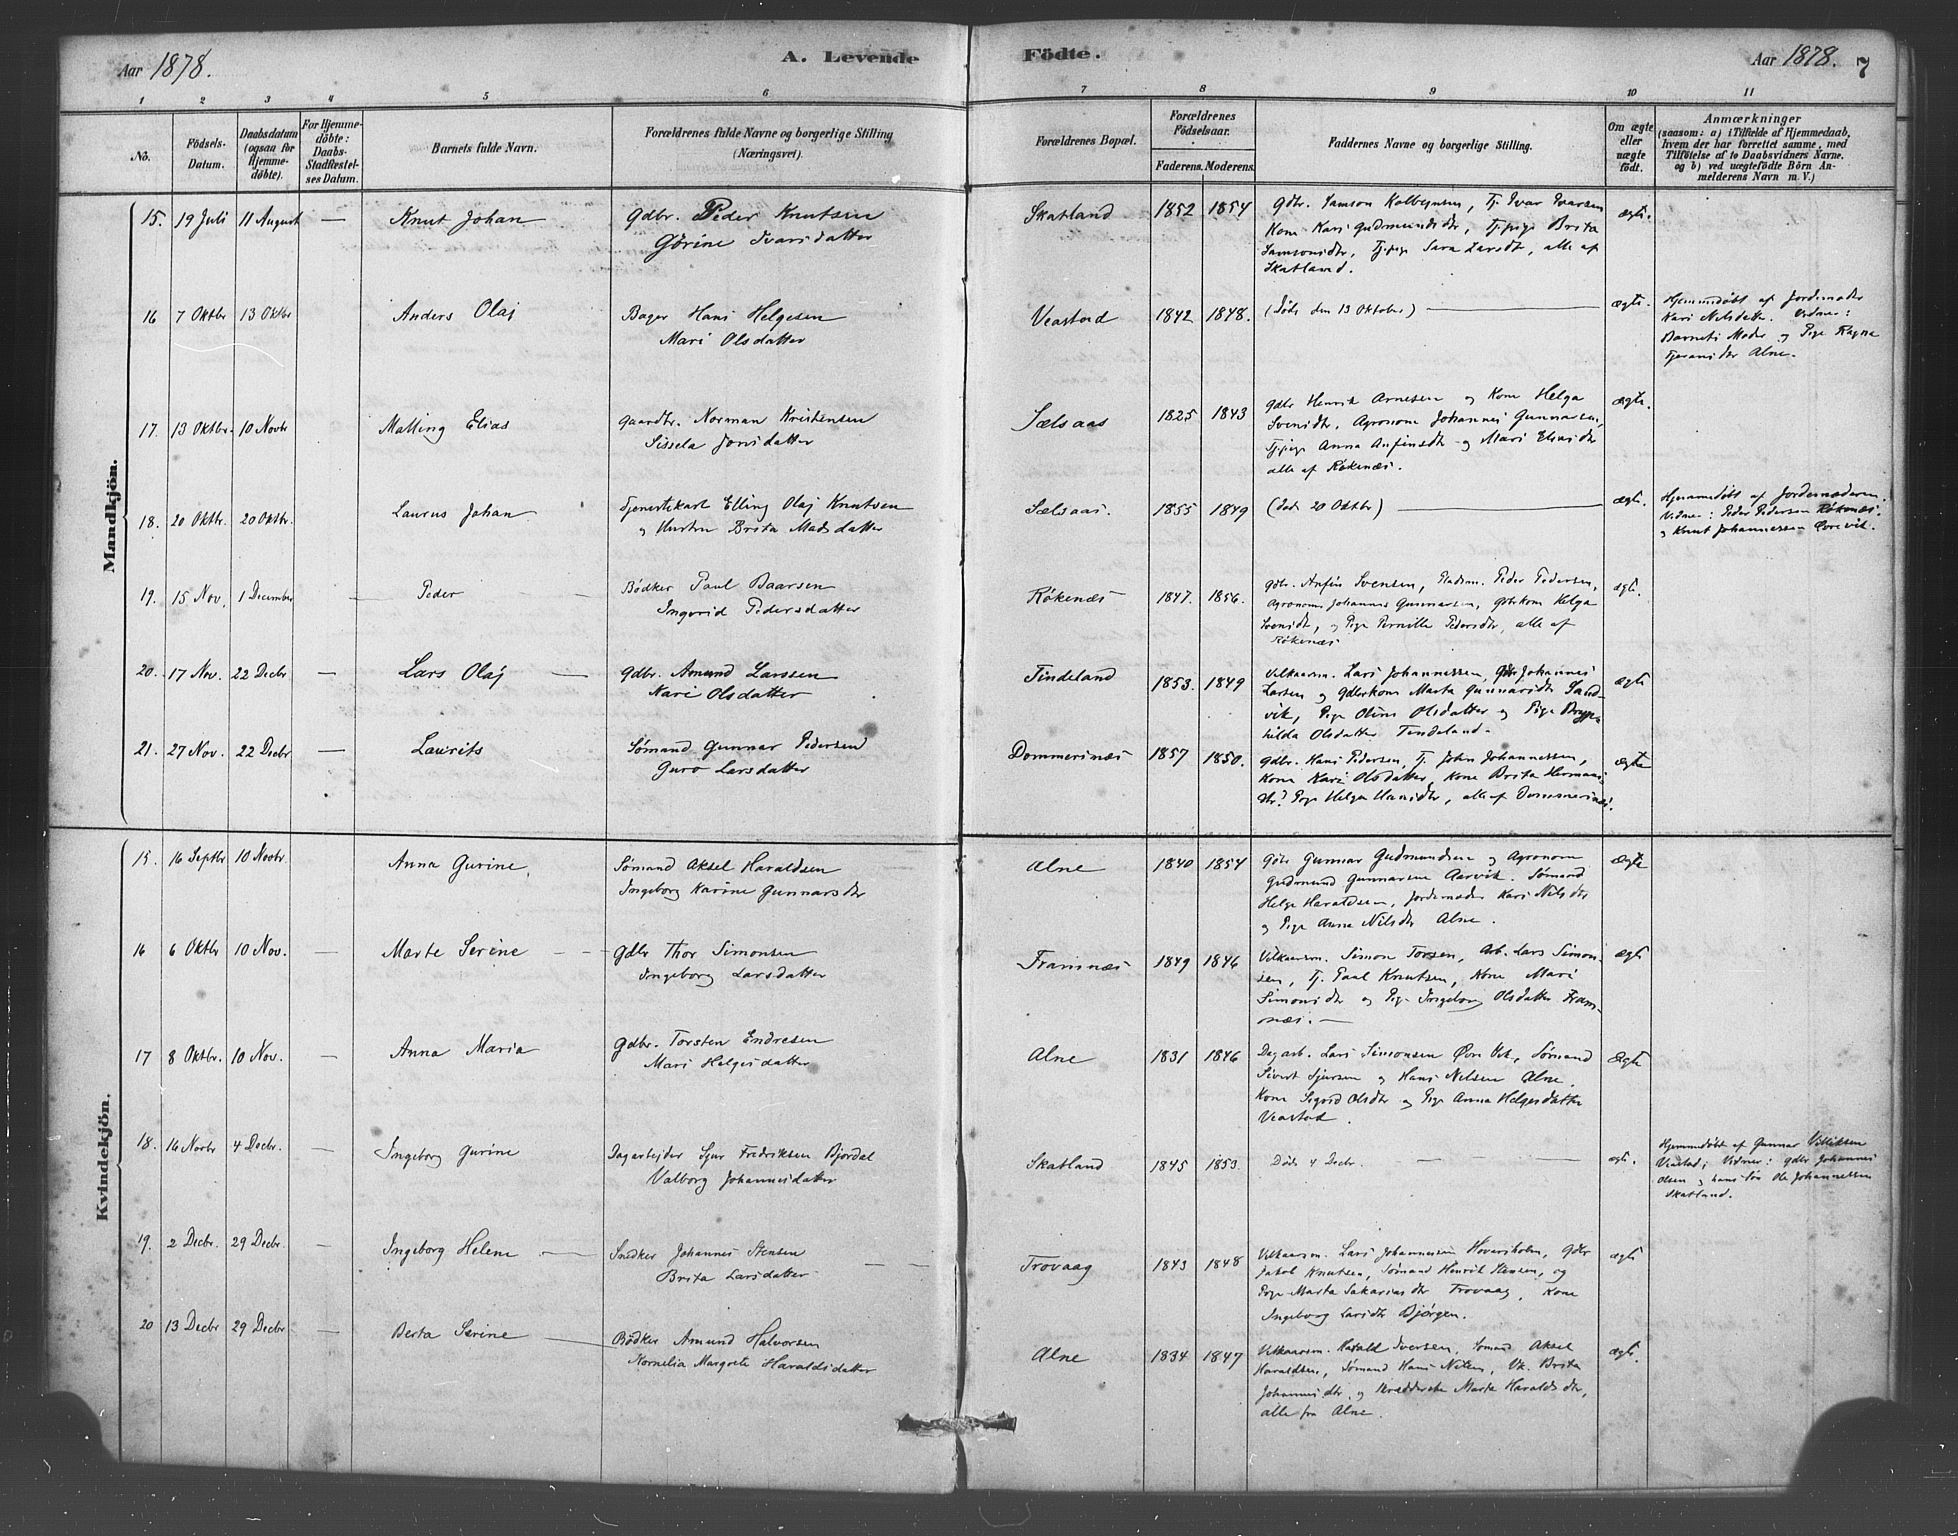 Aar 1878.
A. Levende
Födte.
Aar 1878.
7
1 2 3 4 5 6 7 8 9 10 11
No.
Födsels-
Datum.
Daabsdatum
(ogsaa för
Hjemme-
döbte).
For Hjemme-
döbte:
Daabs-
Stadfæstel-
ses Datum.
Barnets fulde Navn.
Forældrenes fulde Navne og borgerlige Stilling
(Næringsvei).
Forældrenes Bopæl.
Forældrenes
Födselsaar.
Faderens. Moderens.
Faddernes Navne og borgerlige Stilling.
Om ægte
eller
uægte
födt.
Anmærkninger
(saasom: a) i Tilfælde af Hjemmedaab,
hvem der har forrettet samme, med
Tilföielse af to Daabsvidners Navne.
og b) ved uægtefödte Börn An-
melderens Navn m. V.)
Mandkjön.
15. 19 Juli 11 August — Knut Johan
Gdbr. Peder Knutsen
Gørine Ivarsdatter
Skatland 1852 1854
Gdbr. Samson Kolbeinsen, Tj. Ivar Ivarsen
Kone Kari Gudmundsdtr, Tj.pige Brita
Samsonsdtr, Tj.pige Sara Larsdt, alle af
Skatland.
ægte.
16 7 Oktbr 13 Oktbr Anders Olaj
Bager Hans Helgesen
Mari Olsdatter
Veastad 1842 1848.
(Døde den 13 Oktober) —
ægte.
Hjemmedøbt af Jordemoder
Kari Nilsdatter. Vidner:
Barnets Moder og Pige Ragna
Alne.
17. 13 Oktbr. 10 Novbr Malling Elias
Gaardbr. Norman Kristensen
Sissela Jonsdatter
Sælsaas 1825 1843
Gdbr Henrik Arnesen og Kone Helga
Svensdtr, Agronom Johannes Gunnarsen,
Tj.pige Anna Anfinsdtr og Mari Eliasdtr
alle af Røkenæs.
ægte.
18. 20 Oktbr. 20 Oktbr. Laurus Johan
Tjenestekarl Elling Olaj Knutsen
og Hustru Brita Madsdatter
Sælsaas. 1855 1849
(Død 20 Oktbr) —
ægte.
Hjemmedøbt af Jordemoderen.
Vidner: Peder Pedersen Røkenæs.
og Knut Johannessen Ørevik.
19. 15 Nov. 1 December — Peder —
Bødker Paul Baarsen
Ingerid Pedersdatter
Røkenæs 1847. 1856.
Gdbr. Anfin Svensen, Pladsm. Peder Pedersen,
Agronom Johannes Gunnarsen, Gdbrkone Helga
Svensdt, og Pige Pernille Pedersdtr, alle af
Røkenæs
ægt.
20. 17 Nov. 22 Decbr — Lars Olaj —
Gdbr. Amund Larssen
Kari Olsdatter
Tindeland 1853. 1849
Vilkaarsm. Lars Johannessen, Gdbr Johannes
Larsen og Gdbrkone Marta Gunnarsdtr Sand-
vik, Pige Oline Olsdatter og Pige
hilda Olsdatter Tindeland.
ægte
21. 27 Nov. 22 Decbr — Laurits
Sømand Gunnar Pedersen
Guro Larsdatter
Dommersnæs 1857 1850.
Gdbr. Hans Pedersen, Tj. John Johannessen,
Kone Kari Olsdatter, Kone Brita Hermans-
dtr, Pige Helga Hansdtr, alle af Dommersnæs.
ægte
Kvindekjön.
15. 16 Septbr 10 Novbr. Anna Gurine.
Sømand Aksel Haraldsen
Ingeborg Karine Gunnarsdtr
Alne 1840 1854
Gdbr Gunnar Gudmundsen og Agronom
Gudmund Gunnarsen Aarvik. Sømand
Helge Haraldsen, Jordemoder Kari Nilsdtr
og Pige Anna Nilsdtr Alne.
ægte
16 6 Oktbr 10 Nov. — Marte Serine — —
Gdbr Thor Simonsen
Ingeborg Larsdatter
Framnæs 1849 1846
Vilkaarsm. Simon Torsen, Arb. Lars Simon-
sen, Tj. Paul Knutsen, Kone Mari
Simonsdtr og Pige Ingeborg Olsdatter Fram-
næs. —
ægt
17 8 Oktbr. 10 Nov. — Anna Maria
Gdbr. Torsten Endresen
Mari Helgesdatter
Alne 1831 1846
Dagarb. Lars Simonsen Øvre Vik, Sømand
Sivert Sjursen og Hans Nelsen Alne.
Kone Sigrid Olsdtr og Pige Anna Helgesdatter
Veastad.
Ægte
18. 16 Novbr 4 Decbr. — Ingeborg Gurine
Dagarbejder Sjur Fredriksen Bjordal
Valborg Johannesdatter
Skatland 1845 1853.
Døds 4 Decbr. — — —
ægt.
Hjemmedøbt af Gunnar Villiksen
Veastad; Vidner: Gdbr Johannes
Olsen og hans Søn Ole Johannessen
Skatland.
19. 2 Decbr. 29 Decbr. — Ingeborg Helene —
Snedker Johannes Stensen
Brita Larsdatter — —
Trovaag 1843 1848
Vilkaarsm. Lars Johannessen Hovarsholm, Gdbr
Jakob Knutsen, Sømand Henrik Hansen, og
Pige Marta Sakariasdtr Trovaag, Kone
Ingeborg Larsdtr Bjørgen.
ægte
20 13 Decbr 29 Decbr — Berta Serine —
Bødker Amund Halvorsen
Kornelia Margrete Haraldsdatter
Alne 1834 1847
Vilkaarsm. Harald Iversen, Sømand Aksel
Haraldsen, Sømand Hans Nilsen, Vk. Brita
Johannesdtr, og Marta Haraldsdtr,
alle fra Alne.
ægt.